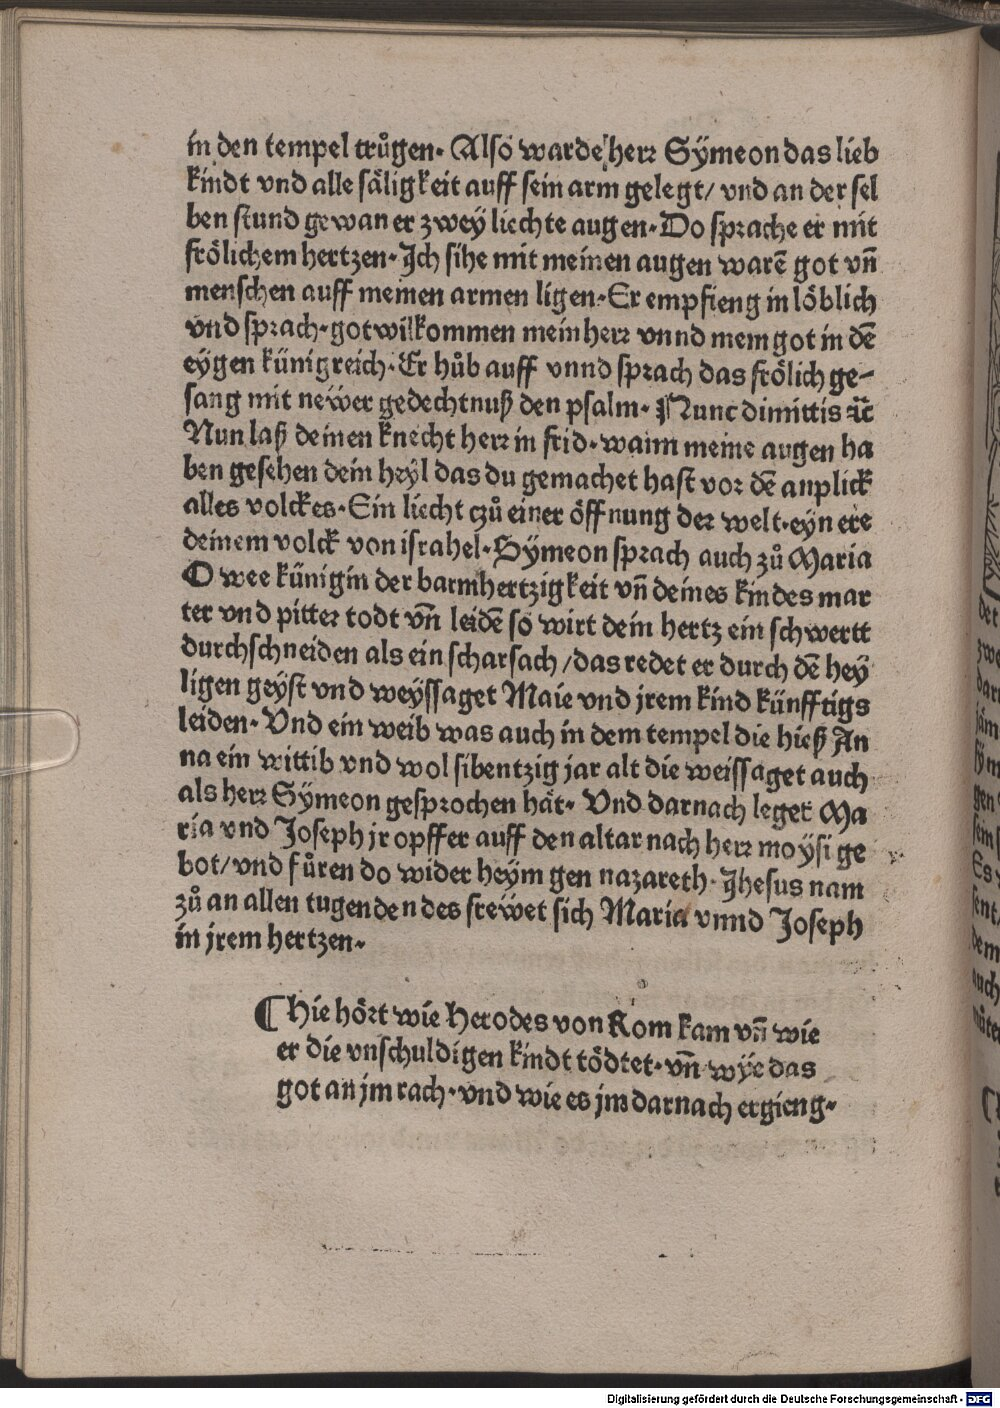 in den tempel trůgen. Also warde herr Sÿmeon das lieb
kindt vnd alle säligkeit auff sein arm gelegt/ vnd an der sel
ben stund gewan er zweÿ liechte augen. Do sprache er mit
frölichem hertzen. Ich sihe mit meinen augen warē got vñ
menschen auff meinen armen ligen. Er empfieng in löblich
vnd sprach. got wilkommen mein herr vnnd mein got in dē
eÿgen künigreich. Er hůb auff vnnd sprach das frölich ge-
sang mit newer gedechtnuß den psalm. Nunc dimittis ꝛc̄
Nun laß deinen knecht herr in frid. wann meine augen ha
ben gesehen dein heÿl das du gemachet hast vor dē anplick
alles volckes. Ein liecht czů einer öffnung der welt. eyn ere
deinem volck von israhel. Sÿmeon sprach auch zů Maria
O wee künigin der barmhertzigkeit vñ deines kindes mar
ter vnd pitter todt vñ leidē so wirt dein hertz ein schwertt
durchschneiden als ein scharsach/ das redet er durch dē heÿ
ligen geÿst vnd weÿssaget Maie vnd jrem kind künfftigs
leiden. Vnd ein weib was auch in dem tempel die hieß An
na ein wittib vnd wol sibentzig jar alt die weissaget auch
als herr Sÿmeon gesprochen hät. Vnd darnach leget Ma
ria vnd Joseph jr opffer auff den altar nach herr moÿsi ge
bot/ vnd fůren do wider heÿm gen nazareth. Jhesus nam
zů an allen tugenden des frewet sich Maria vnnd Joseph
in jrem hertzen.
¶ Hie hört wie Herodes von Rom kam vñ wie
er die vnschuldigen kindt tödtet. vñ wÿe das
got an jm rach. vnd wie es jm darnach ergieng.
Digitalisierung gefördert durch die Deutsche Forschungsgemeinschaft - DFG